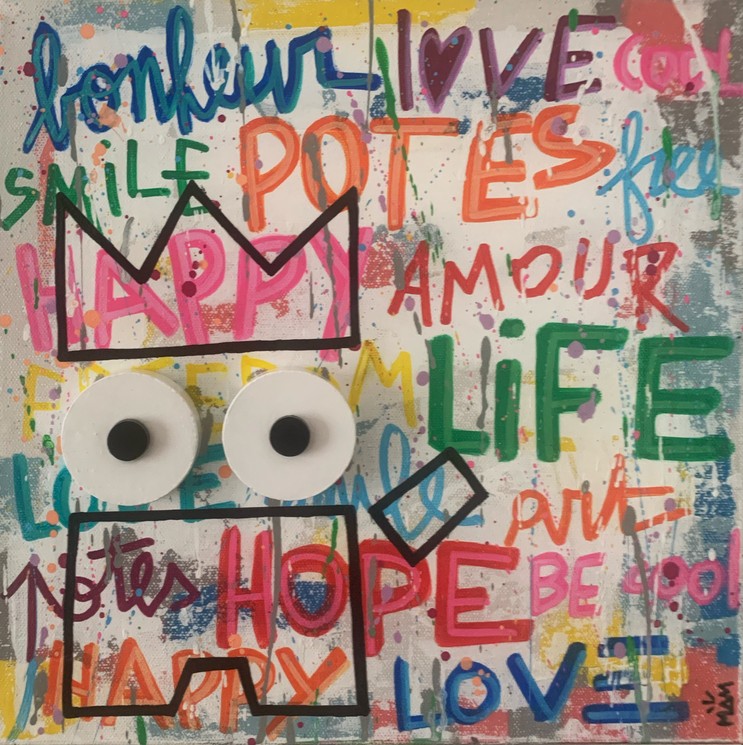 bonheur LOVE COOL
SMiLE POTES free
HAPPY AMOUR
LiFE
LOVE smile art
potes HOPE BE cool
HAPPY LOVE
MAM